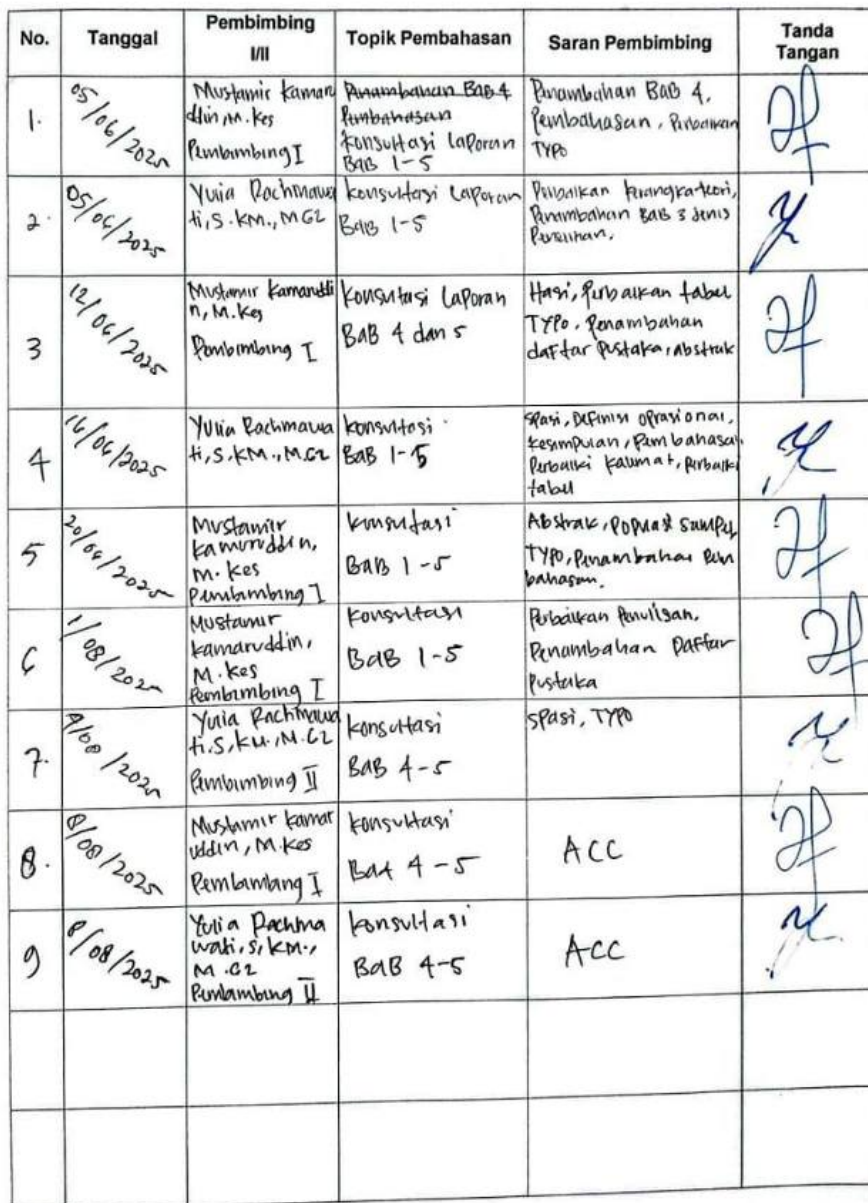 No. Tanggal Pembimbing I/II Topik Pembahasan Saran Pembimbing Tanda Tangan
1. 05/06/2025
Mustamir Kamar
ddin, M. Kes
Pembimbing I
Penambahan Bab 4
Pembahasan
konsultasi laporan
BaB 1-5
Penambahan BaB 4,
Pembahasan, Perbaikan
TYPO
2. 05/06/2025
Yulia Rachmawa
ti, S.KM., M.Gz
konsultasi Laporan
BaB 1-5
Perbaikan kerangka teori,
Penambahan BaB 3 Jenis
Penelitian.
3 12/06/2025
Mustamir Kamaruddi
n, M.Kes
Pembimbing I
Konsultasi Laporan
BaB 4 dan 5
Hasil, Perbaikan tabel
TYPO, Penambahan
daftar Pustaka, abstrak
4 16/06/2025
Yulia Rachmawa
ti, S.KM., M.Gz
konsultasi
BaB 1-5
Spasi, Definisi oprasional,
kesimpulan, Pembahasan
Perbaiki kalimat, Perbaiki
tabel
5 20/06/2025
Mustamir
Kamaruddin,
M. Kes
Pembimbing I
konsultasi
BaB 1-5
Abstrak, Populasi Sampel,
TYPO, Penambahan Pem
bahasan.
6 1/08/2025
Mustamir
Kamaruddin,
M. Kes
Pembimbing I
konsultasi
BaB 1-5
Perbaikan Penulisan,
Penambahan Daftar
Pustaka
7. /2025
Yulia Rachmawa
ti, S.KM., M.Gz
Pembimbing II
konsultasi
BaB 4-5
SPasi, TYPO
8. 8/08/2025
Mustamir Kamar
uddin, M.Kes
Pembimbing I
konsultasi
4-5
ACC
9 8/08/2025
Yulia Rachma
wati, S.KM.,
M.Gz
Pembimbing II
konsultasi
BaB 4-5
ACC